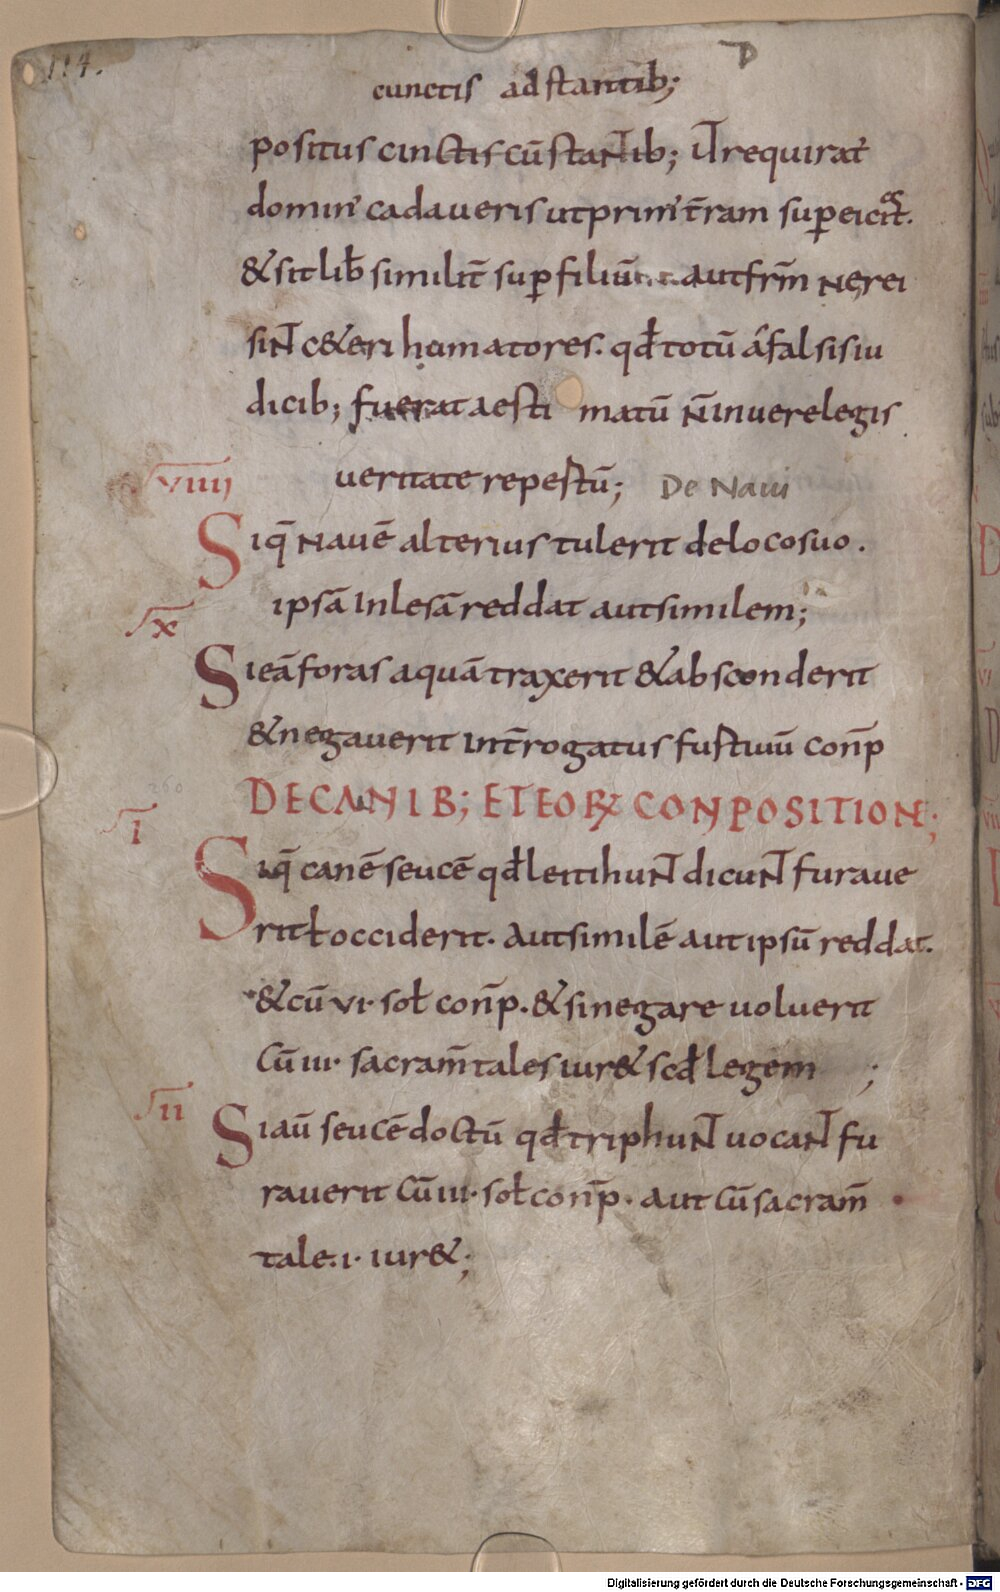 114.
cunctis adstantib;
positus cinctis cū stantib; ut requirat
domin' cadaveris ut prim' t̄ram sup eiciat.
& sit lib̄ similit̄ sup filiū aut fr̄m nerei
sint c&eri humatores. qđ totū a falsis iu
dicib; fuerat aesti matū n̄ in uere legis
ueritate repestū; De Naui
VIIII
Siq̄ nauē alterius tulerit de loco suo.
ipsā Inlesā reddat aut similem;
X
Si eā foras aquā traxerit & absconderit
& negauerit int̄rogatus fustiuū con̄p
DE CANIB; ET EORꝜ CONPOSITION;
I
Siq̄ canē seucē qđ leitihunt dicunt furaue
rit ł occiderit. Aut similē aut ipsū reddat.
& cū VI· soł con̄p. & si negare uoluerit
Cū III· sacram̄tales iur& scđ legem ;
II
Si aū seucē doctū qđ triphunt uocant fu
rauerit Cū III· soł con̄p. aut Cū sacram̄
tale. I· iur&;
Digitalisierung gefördert durch die Deutsche Forschungsgemeinschaft - DFG